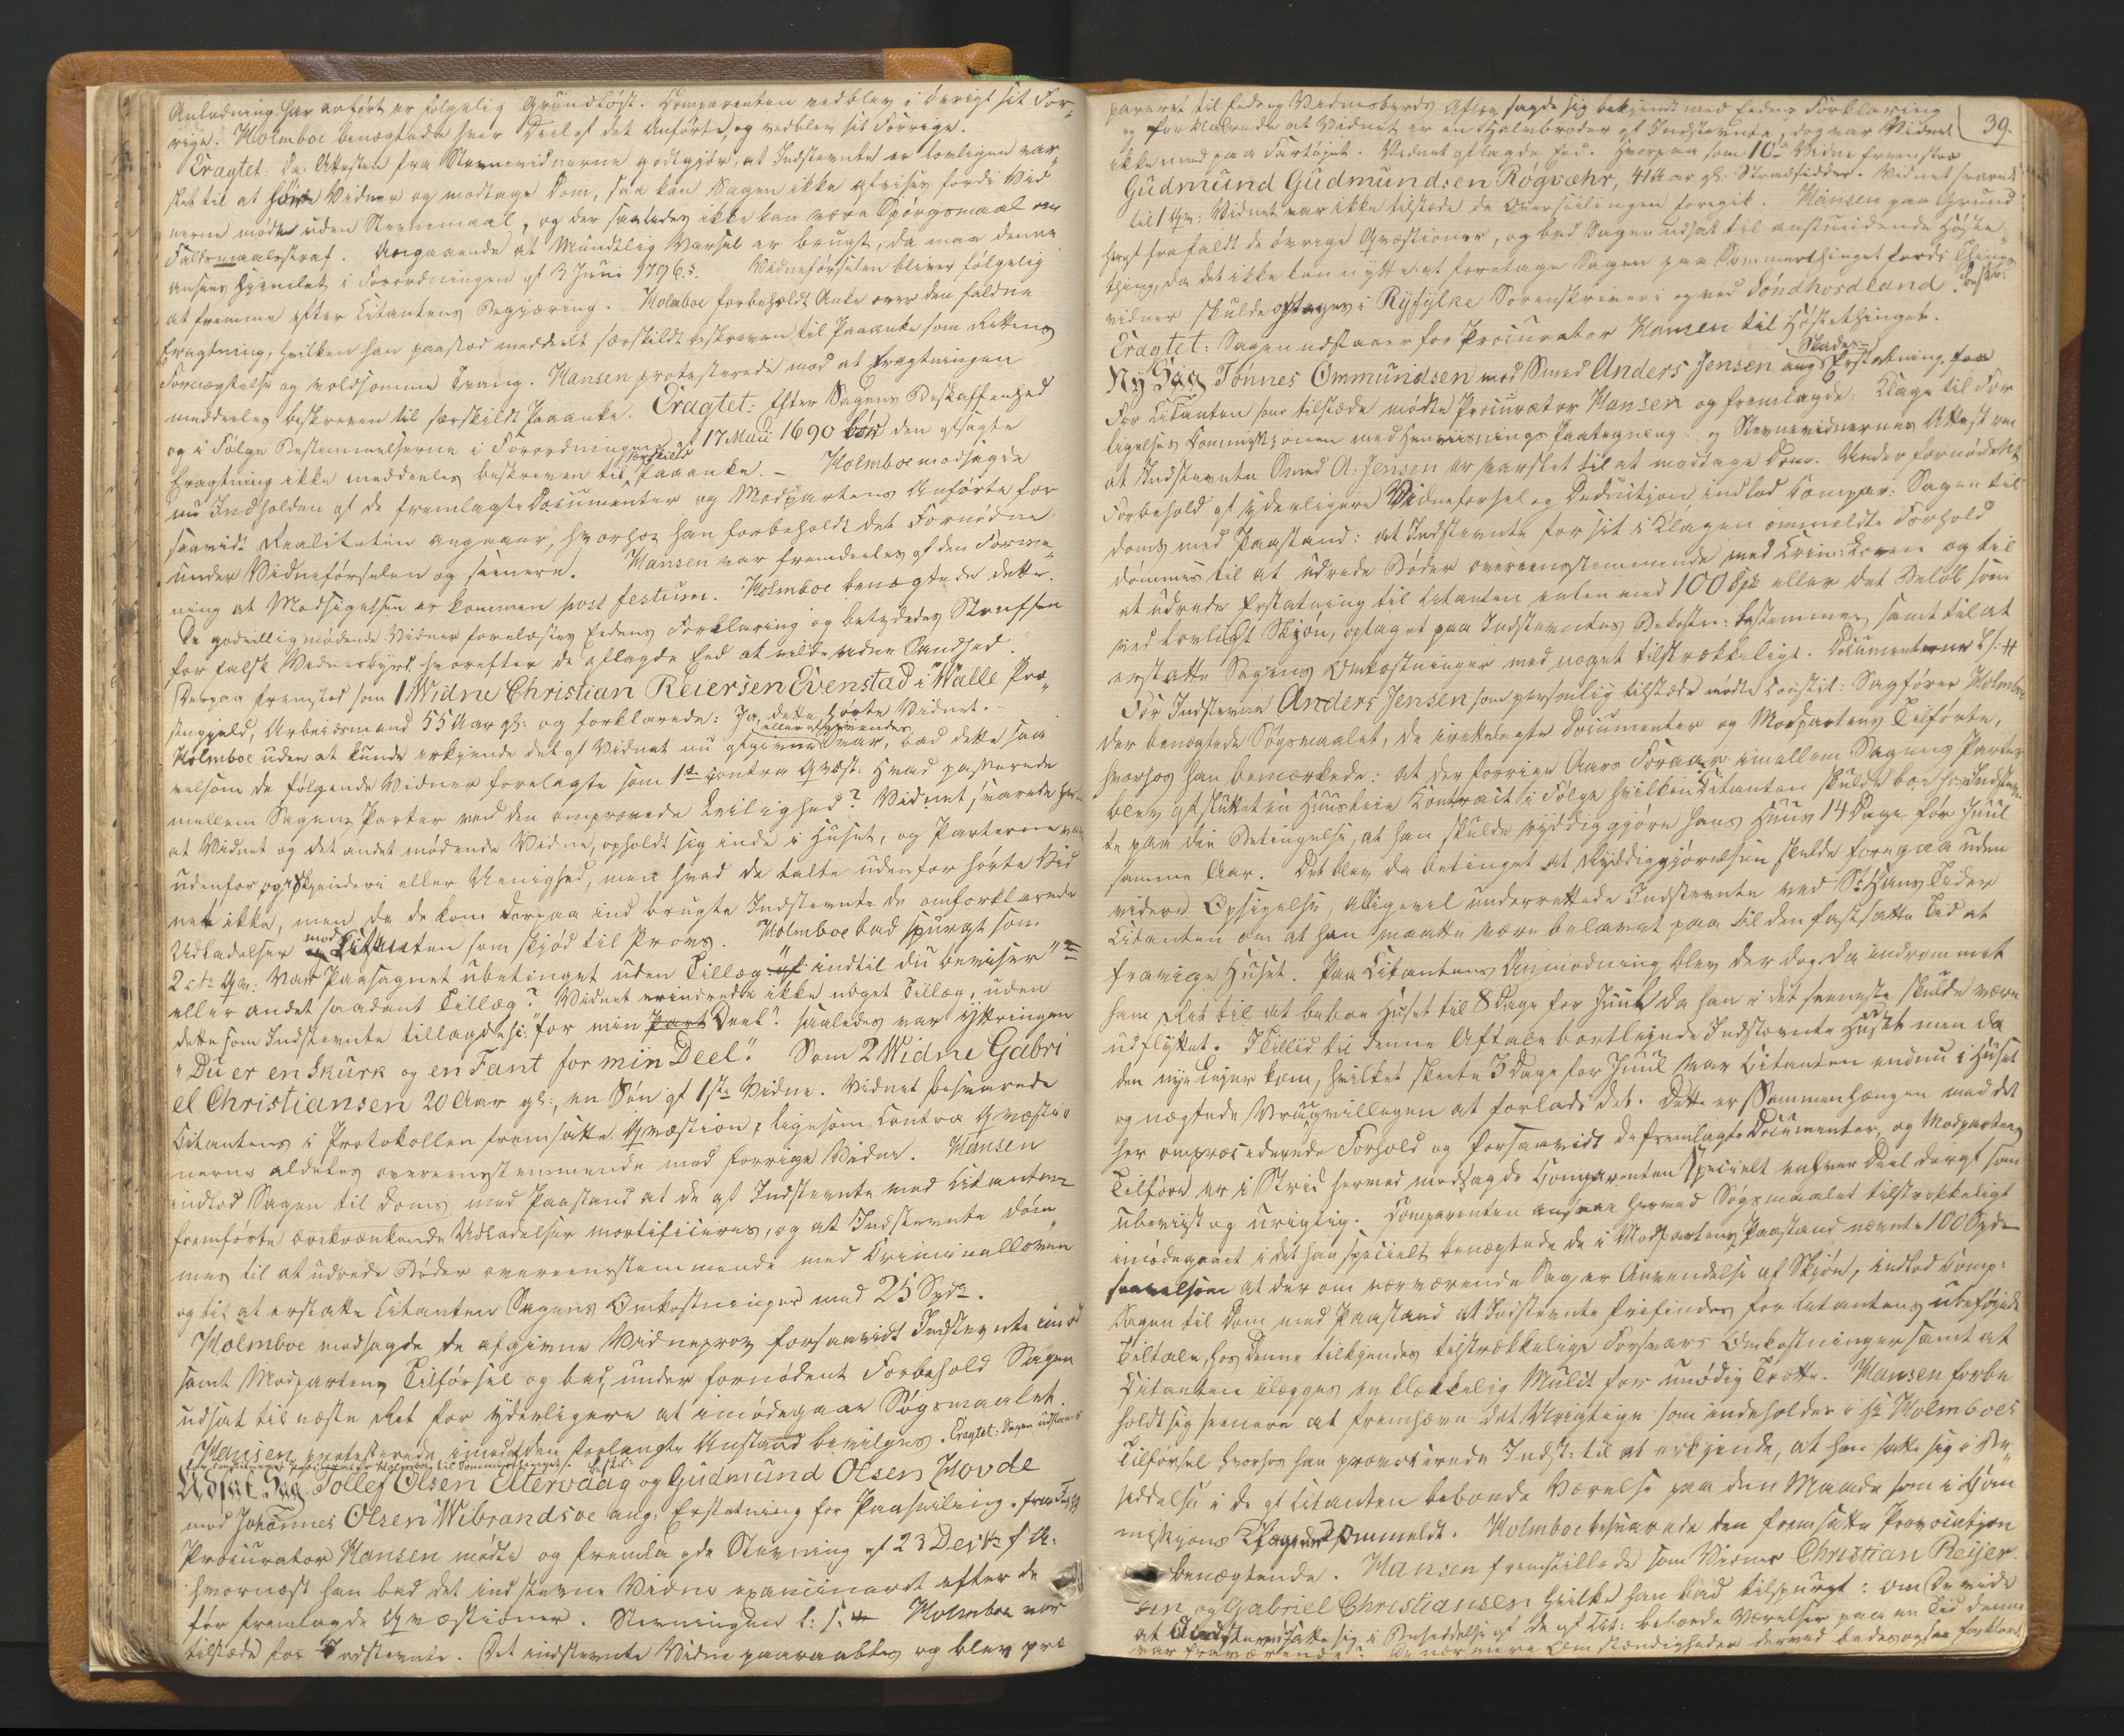 Anledning har anført er følgelig Grundløst. Comparenten vedblev i øvrigt sit For-
rige. Holmboe benægtede hver Deel af det Anførte, og vedblev sit Forrige.
Eragtet: Da Attesten fra Stævnevidnerne godtgjør, at Indstevnte er lovligen var-
slet til at høre Vidner og modtage Dom, saa kan Sagen ikke afvises fordi Vid
nerne møde uden Stevnemaal, og der saaledes ikke kan være Spørgsmaal om
Faldsmaalsstraf. Angaaende at Mundtlig Varsel er brugt, da maa denne
ansees hjemlet i Forordningen af 3 Juni 1796. Vidneførselen bliver følgelig
at fremme efter Citantens Begjæring. Holmboe forbeholdt Anke over den faldne
Eragtning, hvilken han paastod meddeelt særskildt beskreven til Paaanke som Rettens
Fornægtelse og voldsomme Tvang. Hansen protesterede mod at Eragtningen
meddeeles beskreven til særskildt Paaanke. Eragtet: Efter Sagens Beskaffenhed
og i Følge Bestemmelserne i Forordningen af 17 Maii 1690 bør den afsagte
Eragtning ikke meddeeles beskreven til særskildt Paaanke. – Holmboe modsagde
nu Indholden af de fremlagte Documenter og Modpartens Anførte for
saavidt Realiteten angaaer, hvorhos han forbeholdt det Fornødne
under Vidneførselen og seenere. Hansen var fremdeeles af den Forme-
ning at Modsigelsen er kommen post festum. Holmboe benægtede dette.
De godvillig mødende Vidner forelæstes Eedens Forklaring og betydedes Straffen
for falsk Vidnesbyrd hvorefter de aflagde Eed at ville vidne Sandhed.
Derpaa fremstod som 1 Widne Christian Reiersen Evenstad i Walle Præ-
stegjeld, Arbeidsmand 55 Aar gl: og forklarede: Ja, dette hørte Vidnet. –
Holmboe uden at kunde erkjende det af Vidnet nu afgivne eller afgivendes Svar, bad dette saa
velsom de følgende Vidner forelagte som 1ste contra Qvæst: Hvad passerede
mellem Sagens Parter ved den omprovede Leilighed? Vidnet svarede
at Vidnet og det andet mødende Vidne, opholdt sig inde i Huset, og Parterne var
udenfor og Skjenderi eller Uenighed, men hvad de talte udenfor hørte Vid
net ikke, men da de kom derpaa ind brugte Indstevnte de omforklarede
Udladelser mod Citanten som skjød til Provs. Holmboe bad spurgt som
2det Qv: Var Paasagnet ubetinget uden Tillæg af "indtil du beviser"
eller andet saadant Tillæg? Vidnet erindrede ikke noget Tillæg, uden
dette som Indstevnte tillagde "for min Part Deel". saaledes var Yttringen
"Du er en Skurk og en Fant for min Deel." Som 2 Widne Gabri
el Christiansen 20 Aar gl:, en Søn af 1ste Vidne. Vidnet besvarede
Citantens i Protokollen fremsatte Qvæstion, ligesom Contra Qvæstio
nerne aldeles overeenstemmende med forrige Vidne. Hansen
indlod Sagen til Doms med Paastand at de af Indstevnte mod Citanten
fremførte ærekrænkende Udladelser mortificeres, og at Indstevnte døm-
mes til at udrede Bøder overeensstemmende med Criminalloven
og til at erstatte Citanten Sagens Omkostninger med 25 Spdr.
Holmboe modsagde de afgivne Vidneprov forsaavidt Indstevnte imod
samt Modpartens Tilførsel og bad, under fornødent Forbehold Sagen
udsat til næste Ret for yderligere at imødegaae Søgsmaalet.
Hansen protesterede imod at den forlangte Anstand bevilges. Eragtet: Sagen udstaaer
Udsat Sag. Tollef Olsen Eltervaag og Gudmund Olsen Hovde
mod Johannes Olsen Wibrandsøe ang: Erstatning for Paaseiling.
Procurator Hansen mødte og fremlagde Stevning af 23 Decbr f. A.
hvornæst han bad det indstevne Vidne examineret efter de
før fremlagde Qvæstioner. Stevningen l: s. # Holmboe var
tilstæde for Indstevnte. Det indstevnte Vidne paaraabtes og blev pre
39.
pareret til Eed og Vidnesbyrds Aflæg, sagde sig bekjendt med Eedens Forklaring
og forklarede at Vidnet er en Halvbroder af Indstevnte, dog var Vidnet
ikke med paa Fartøiet. Vidnet aflagde Eed. Hvorpaa som 10de Vidne fremstod
Gudmund Gudmundsen Rogvæhr, 41 Aar gl: Strandsidder. Vidnet svarede
til 1 Qv: Vidnet var ikke tilstæde da Overseilingen foregik. Hansen paa Grund
heraf frafaldt de øvrige Qvæstioner, og bad Sagen udsat til anstundende Høste-
thing, da det ikke kan nytte at foretage Sagen paa Sommerthinget fordi Things
vidner skulde optages i Ryfylke Sorenskriveri og ved Søndhordland
Eragtet: Sagen udstaaer for Procurator Hansen til Høstethinget.
Ny Sag Tønnes Ommundsen mod Smed Anders Jensen ang: Skades-Erstatning.
For Citanten som tilstæde mødte Procurator Hansen og fremlagde: Klage til For
ligelses Commissionen med Henviisnings Paategning: og Stevnevidnernes Attest om
at Indstevnte Smed A: Jensen er varslet til at modtage Dom. Under fornødent
Forbehold af yderligere Vidneførsel og Deduction indlod Compar: Sagen til
doms med Paastand: at Indstevnte for sit i Klagen ommeldte Forhold
dømmes til at udrede Bøder overeensstemmende med Crim: Loven og til
at udrede Erstatning til Citanten enten med 100 Spd. eller det Beløb som
ved lovligt Skjøn, optaget paa Indstevntes Bekostn: bestemmes samt til at
erstatte Sagens Omkostninger med noget tilstrækkeligt. Documenterne l. s: #
For Indstevnte Anders Jensen som personlig tilstæde mødte Constit: Sagfører Holmboe
der benægtede Søgsmaalet, de irettelagte Documenter og Modpartens Tilførte,
hvorhos han bemærkede: at der forrige Aars Foraar imellem Sagens Parter
blev afsluttet en Huusleie Kontract i Følge hvilken Citanten skulde boe hos Indstevn
te paa den Betingelse, at han skulde ryddiggjøre hans Huus 14 Dage før Juul
samme Aar. Det blev da betinget at Ryddiggjørelsen skulde foregaa uden
videre Opsigelse, alligevel underrettede Indstevnte ved St Hans Tider
Citanten om at han maatte være belavet paa til den fastsatte Tid at
fravige Huset. Paa Citantens Anmodning blev der dog da indrømmet
ham Ret til at beboe Huset til 8 Dage før Juul da han i det seeneste skulde være
udflyttet. I Tillid til denne Aftale bortleiede Indstevnte Huset men da
den nye Leier kom, hvilket skeete 3 Dage før Juul var Citanten endnu i Huset
og nægtede Vrangvilligen at forlade det. Dette er Sammenhængen med det
her omprocederede Forhold og forsaavidt de fremlagte Documenter, og Modpartens
Tilførte er i Strid hermed modsagde Comparenten specielt enhver Deel deraf som
ubeviist og urigtig. Comparenten ansaae hermed Søgsmaalet tilstrækkeligt
imødegaaet i det han specielt benægtede de i Modpartens Paastand nævnte 100 Spd.
saavelsom at der om nærværende Sag er Anvendelse af Skjøn, indlod Comp:
Sagen til Dom med Paastand at Indstevnte frifindes for Citantens ubeføiede
Tiltale, hos Denne tilkjendes tilstrækkelige Forsvars Omkostninger samt at
Citanten ilægges en klækkelig Mulct for unødig Trætte. Hansen forbe
holdt sig seenere at fremhæve det Urigtige som indeholdes i Hr Holmboes
Tilførsel hvorhos han provocerede Indst: til at erkjende, at han satte sig i Be-
siddelse i de af Citanten beboede Værelse paa den Maade som i Com
missions Klagen ommeldt. Holmboe besvarede den fremsatte Provocation
benægtende. Hansen fremstillede som Vidner Christian Reijer
sen og Gabriel Christiansen hvilke han bad tilspurgt: om De vide
at Indstevnte satte sig i Besiddelse af de af Cit: beboede Værelser paa en Tid denne
var fraværende? De nærmere Omstændigheder derved bedes ogsaa forklaret